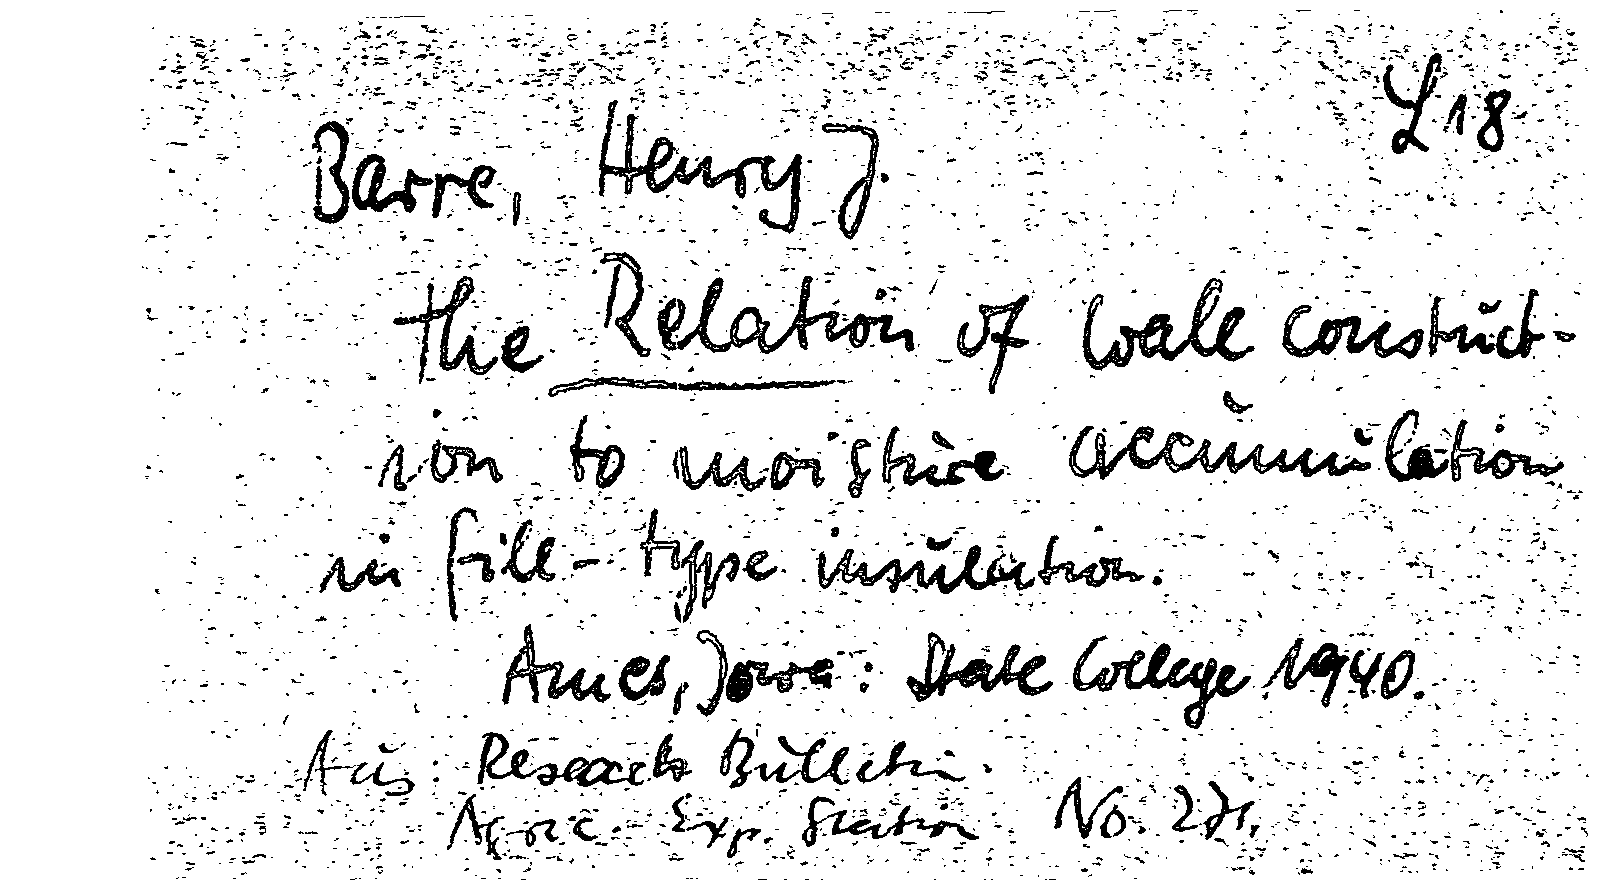 L 18
Barre, Henry J.
the Relation of wall construct-
ion to moisture accumulation
in fill-type insulation.
Ames, Iowa: State College 1940.
Aus: Research Bulletin.
Agric. Exp. Station No. 271.